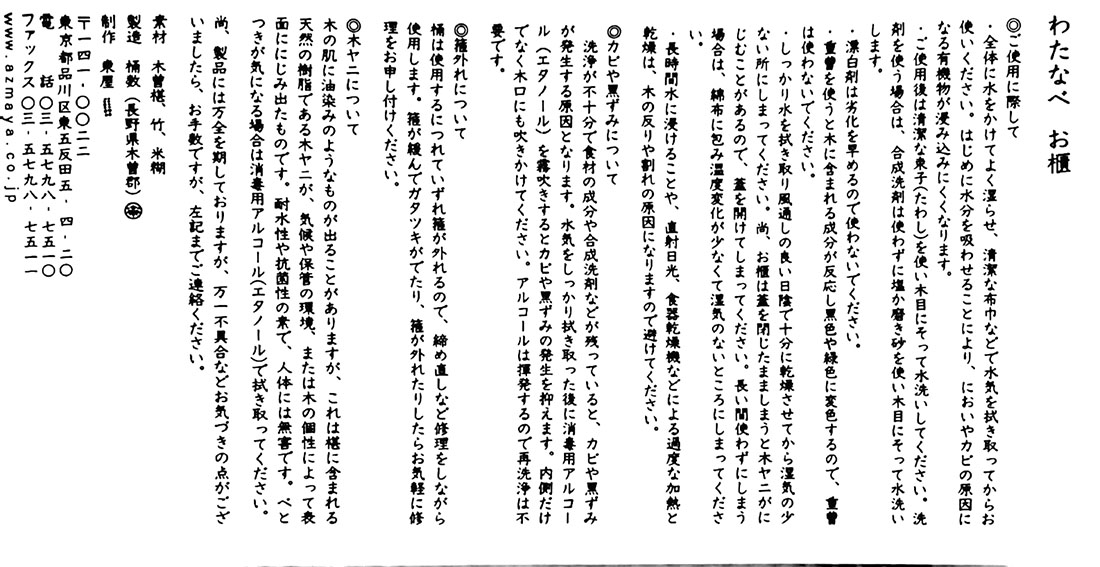 わたなべ　お櫃
◎ご使用に際して
・全体に水をかけてよく湿らせ、清潔な布巾などで水気を拭き取ってからお
使いください。はじめに水分を吸わせることにより、においやカビの原因に
なる有機物が浸み込みにくくなります。
・ご使用後は清潔な束子(たわし)を使い木目にそって水洗いしてください。洗
剤を使う場合は、合成洗剤は使わずに塩か磨き砂を使い木目にそって水洗い
します。
・漂白剤は劣化を早めるので使わないでください。
・重曹を使うと木に含まれる成分が反応し黒色や緑色に変色するので、重曹
は使わないでください。
・しっかり水を拭き取り風通しの良い日陰で十分に乾燥させてから湿気の少
ない所にしまってください。尚、お櫃は蓋を閉じたまましまうと木ヤニがに
じむことがあるので、蓋を開けてしまってください。長い間使わずにしまう
場合は、綿布に包み温度変化が少なくて湿気のないところにしまってくださ
い。
・長時間水に浸けることや、直射日光、食器乾燥機などによる過度な加熱と
乾燥は、木の反りや割れの原因になりますので避けてください。
◎カビや黒ずみについて
洗浄が不十分で食材の成分や合成洗剤などが残っていると、カビや黒ずみ
が発生する原因となります。水気をしっかり拭き取った後に消毒用アルコー
ル（エタノール）を霧吹きするとカビや黒ずみの発生を抑えます。内側だけ
でなく木口にも吹きかけてください。アルコールは揮発するので再洗浄は不
要です。
◎箍外れについて
桶は使用するにつれていずれ箍が外れるので、締め直しなど修理をしながら
使用します。箍が緩んでガタツキがでたり、箍が外れたりしたらお気軽に修
理をお申し付けください。
◎木ヤニについて
木の肌に油染みのようなものが出ることがありますが、これは椹に含まれる
天然の樹脂である木ヤニが、気候や保管の環境、または木の個性によって表
面ににじみ出たものです。耐水性や抗菌性の素で、人体には無害です。べと
つきが気になる場合は消毒用アルコール(エタノール)で拭き取ってください。
尚、製品には万全を期しておりますが、万一不具合などお気づきの点がござ
いましたら、お手数ですが、左記までご連絡ください。
素材　木曽椹、竹、米糊
製造　桶数（長野県木曽郡）
制作　東屋
〒一四一・〇〇二二
東京都品川区東五反田五・四・二〇
電　話〇三・五七九八・七五一〇
ファックス〇三・五七九八・七五一一
www.azmaya.co.jp